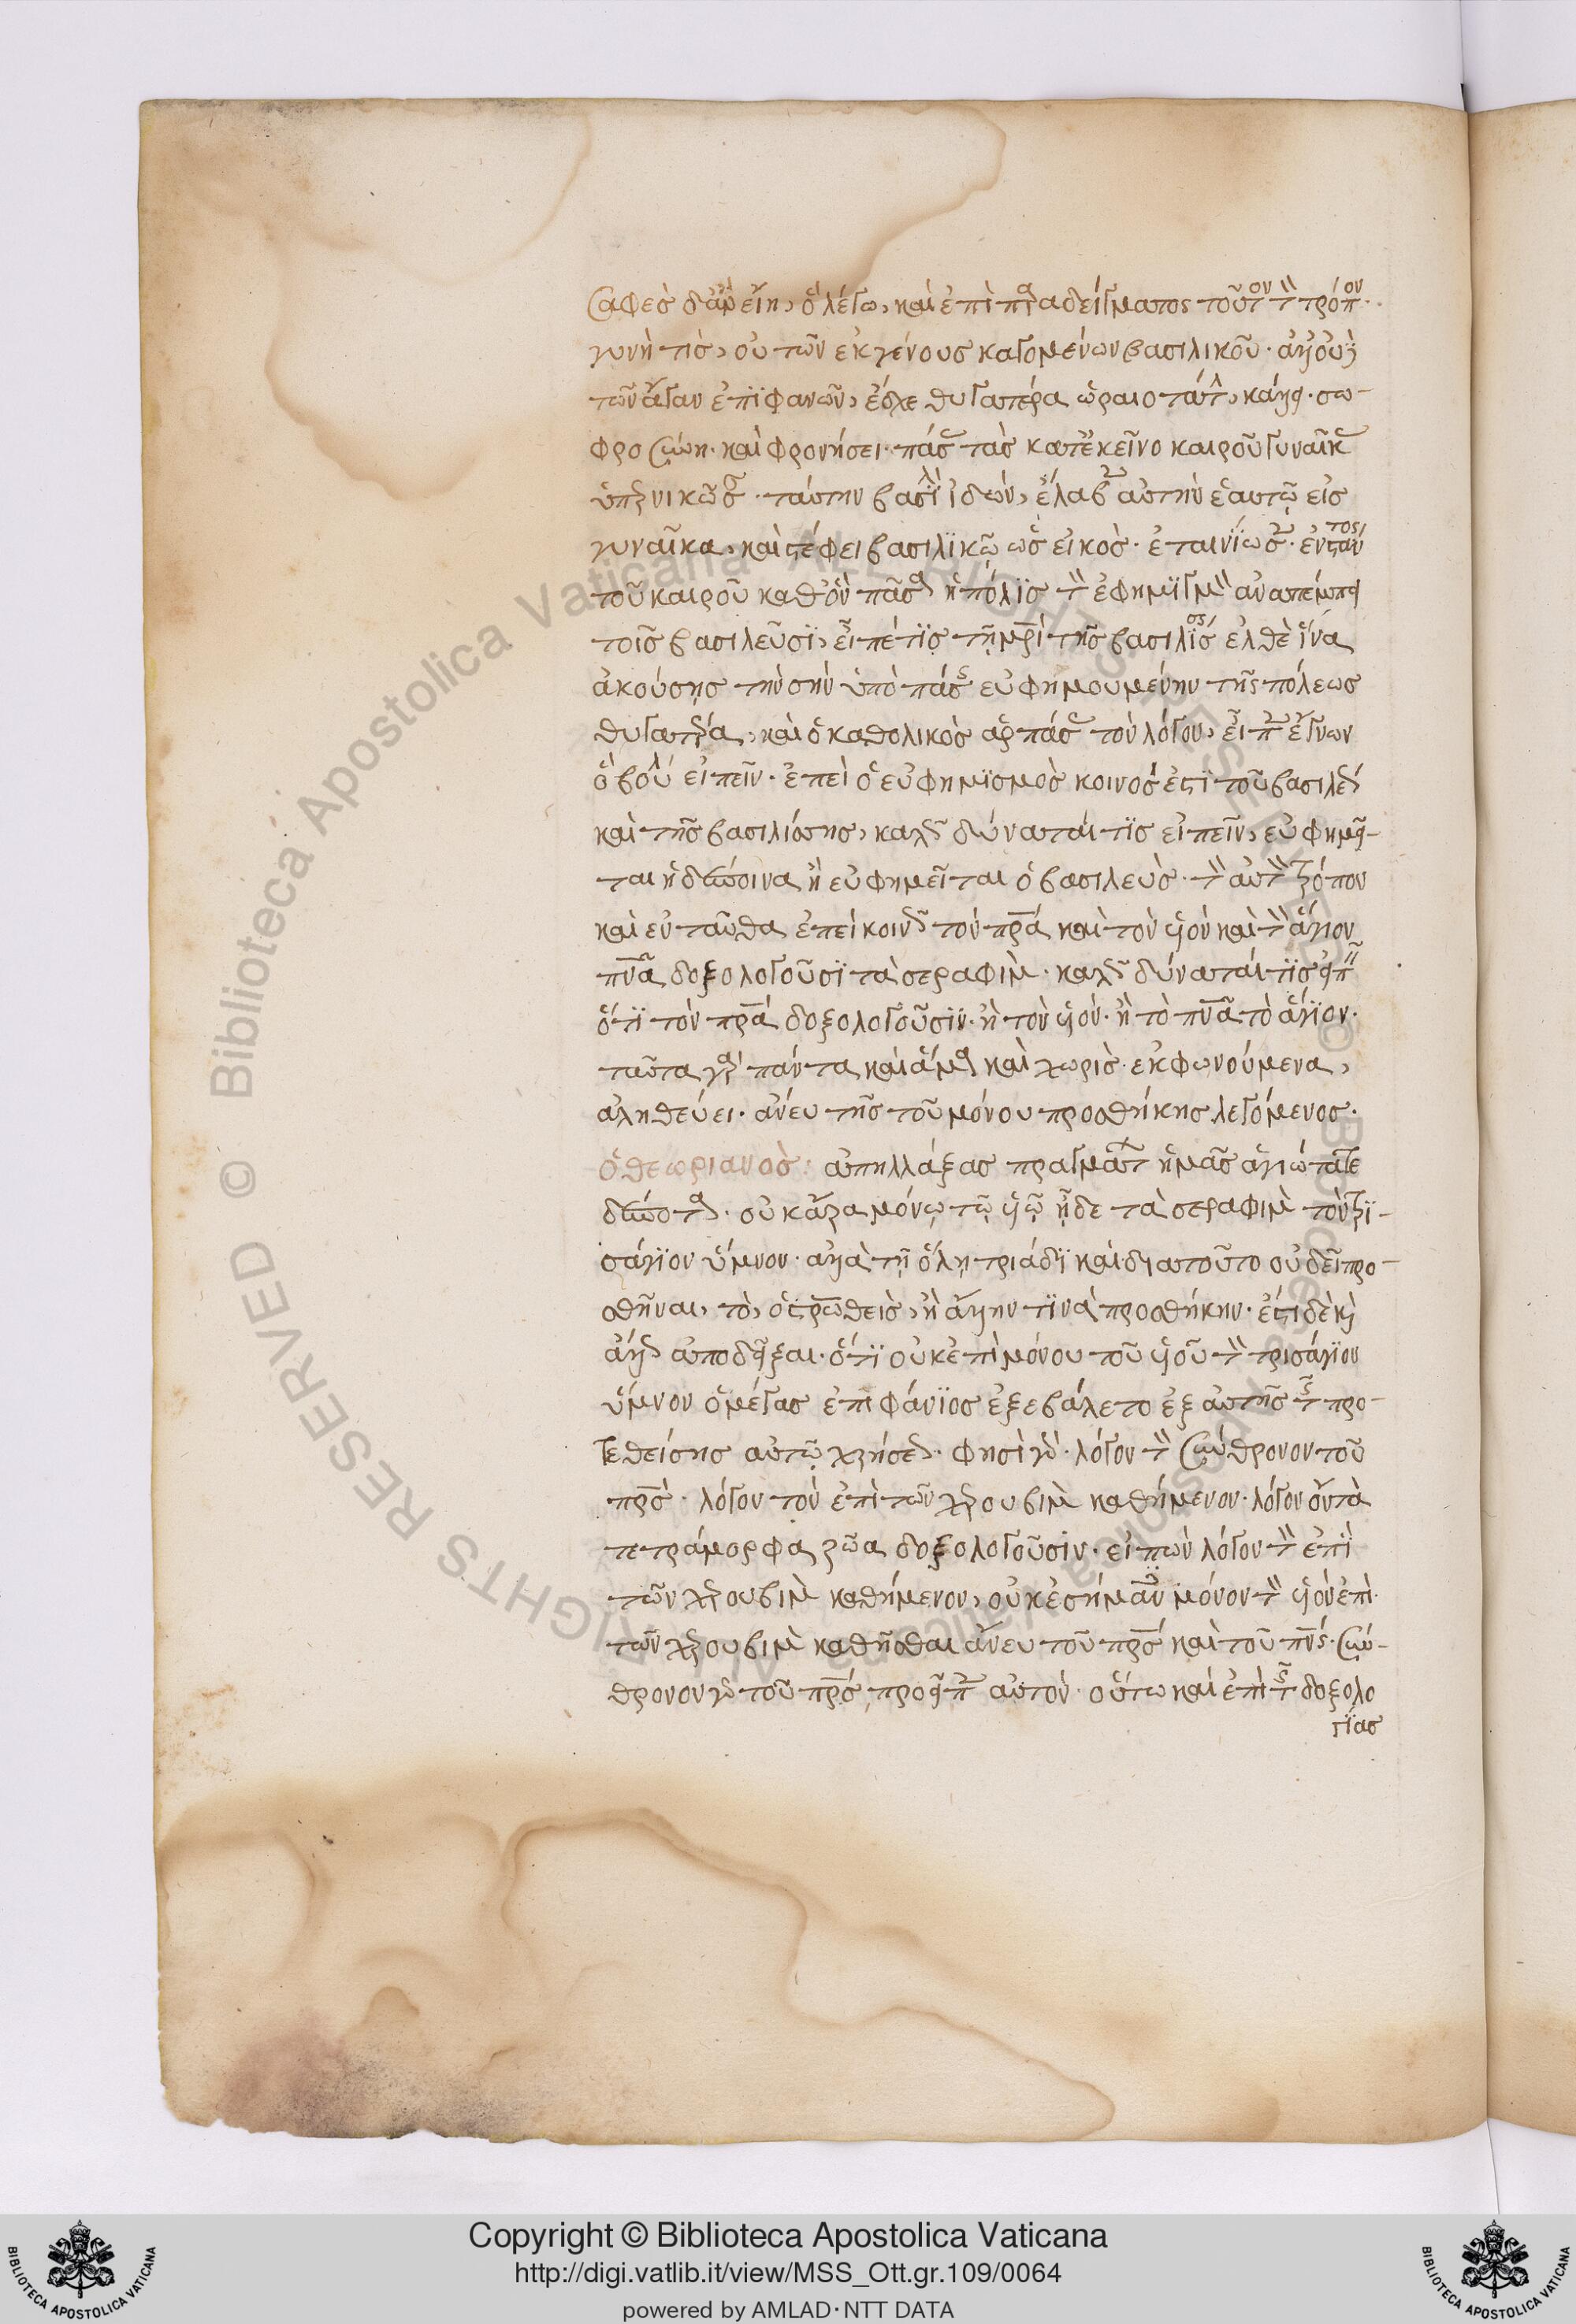 σαφὲς δ' ἂν εἴη, ὃ λέγω, καὶ ἐπὶ παραδείγματος τοῦτον τὸν τρόπον·
γυνή τις, οὐ τῶν ἐκ γένους καταγομένων βασιλικοῦ· ἀλλ' οὐδὲ
τῶν ἄγαν ἐπιφανῶν, ἔσχε θυγατέρα ὡραιοτάτην, κάλλει· σω-
φροσύνη· καὶ φρονήσει· πάσας τὰς κατ' ἐκεῖνο καιροῦ γυναῖκας
ὑπερνικῶσαν· ταύτην βασιλεὺς ἰδών, ἔλαβεν αὐτὴν ἑαυτῷ εἰς
γυναῖκα, καὶ στέφει βασιλικῷ ὡς εἰκὸς· ἐταινίωσεν· ἐνστάντος
τοῦ καιροῦ καθ' ὃν πᾶσα ἡ πόλις τὸν ἐφημισμὸν ἀναπέμπει
τοῖς βασιλεῦσι, εἶπέ τις τῇ μρὶ τῆς βασιλίσσης ἐλθὲ ἵνα
ἀκούσῃς τὴν σὴν ὑπὸ πάσης εὐφημουμένην τῆς πόλεως
θυγατέρα, καὶ ὁ καθολικὸς ἁρπάσας τὸν λόγον, εἶπεν ἔγνων
ὃ βούλει εἰπεῖν· ἐπεὶ ὁ εὐφημισμὸς κοινός ἐστι τοῦ βασιλέως
καὶ τῆς βασιλίσσης, καλῶς δύναταί τις εἰπεῖν, εὐφημεῖ-
ται ἡ δέσποινα ἢ εὐφημεῖται ὁ βασιλεὺς· τὸν αὐτὸν τρόπον
καὶ ἐνταῦθα ἐπεὶ κοινῶς τὸν πρα καὶ τὸν υἱὸν καὶ τὸ ἅγιον
πνα δοξολογοῦσι τὰ σεραφὶμ· καλῶς δύναταί τις εἰπεῖν
ὅτι τὸν πρα δοξολογοῦσιν· ἢ τὸν υἱόν· ἢ τὸ πνα τὸ ἅγιον·
ταῦτα γὰρ πάντα καὶ ἅμα καὶ χωρὶς ἐκφωνούμενα,
ἀληθεύει· ἄνευ τῆς τοῦ μόνου προσθήκης λεγόμενος·
ὁ θεωριανὸς: ἀπηλλάξας πραγμάτων ἡμᾶς ἁγιώτατε
δέσποτα· οὐκ ἄρα μόνῳ τῷ υἱῷ ᾖδε τὰ σεραφὶμ τὸν τρι-
σάγιον ὕμνον· ἀλλὰ τῇ ὅλῃ τριάδι καὶ διατοῦτο οὐ δεῖ προ-
σθῆναι, τὸ, ὁ στρωθεὶς, ἢ ἄλλην τινὰ προσθήκην· ἔστι δὲ καὶ
ἄλλως ἀποδεῖξαι· ὅτι οὐκ ἐπὶ μόνου τοῦ υἱοῦ τὸν τρισάγιον
ὕμνον ὁ μέγας ἐπιφάνιος ἐξεβάλετο ἐξ αὐτῆς τῆς προ-
τεθείσης αὐτῷ χρήσεως· φησὶ γὰρ· λόγον τὸν σύνθρονον τοῦ
πρς· λόγον τὸν ἐπὶ τῶν χερουβὶμ καθήμενον· λόγον ὃν τὰ
τετράμορφα ζῶα δοξολογοῦσιν· εἰπὼν λόγον τὸν ἐπὶ
τῶν χερουβὶμ καθήμενον, οὐκ ἐσήμανεν μόνον τὸν υἱὸν ἐπὶ
τῶν χερουβὶμ καθῆσθαι ἄνευ τοῦ πρς καὶ τοῦ πνς· σύν-
θρονον γὰρ τοῦ πρς, προεῖπεν αὐτόν· οὕτω καὶ ἐπὶ τῆς δοξολο
γίας
Copyright © Biblioteca Apostolica Vaticana
http://digi.vatlib.it/view/MSS_Ott.gr.109/0064
powered by AMLAD·NTT DATA